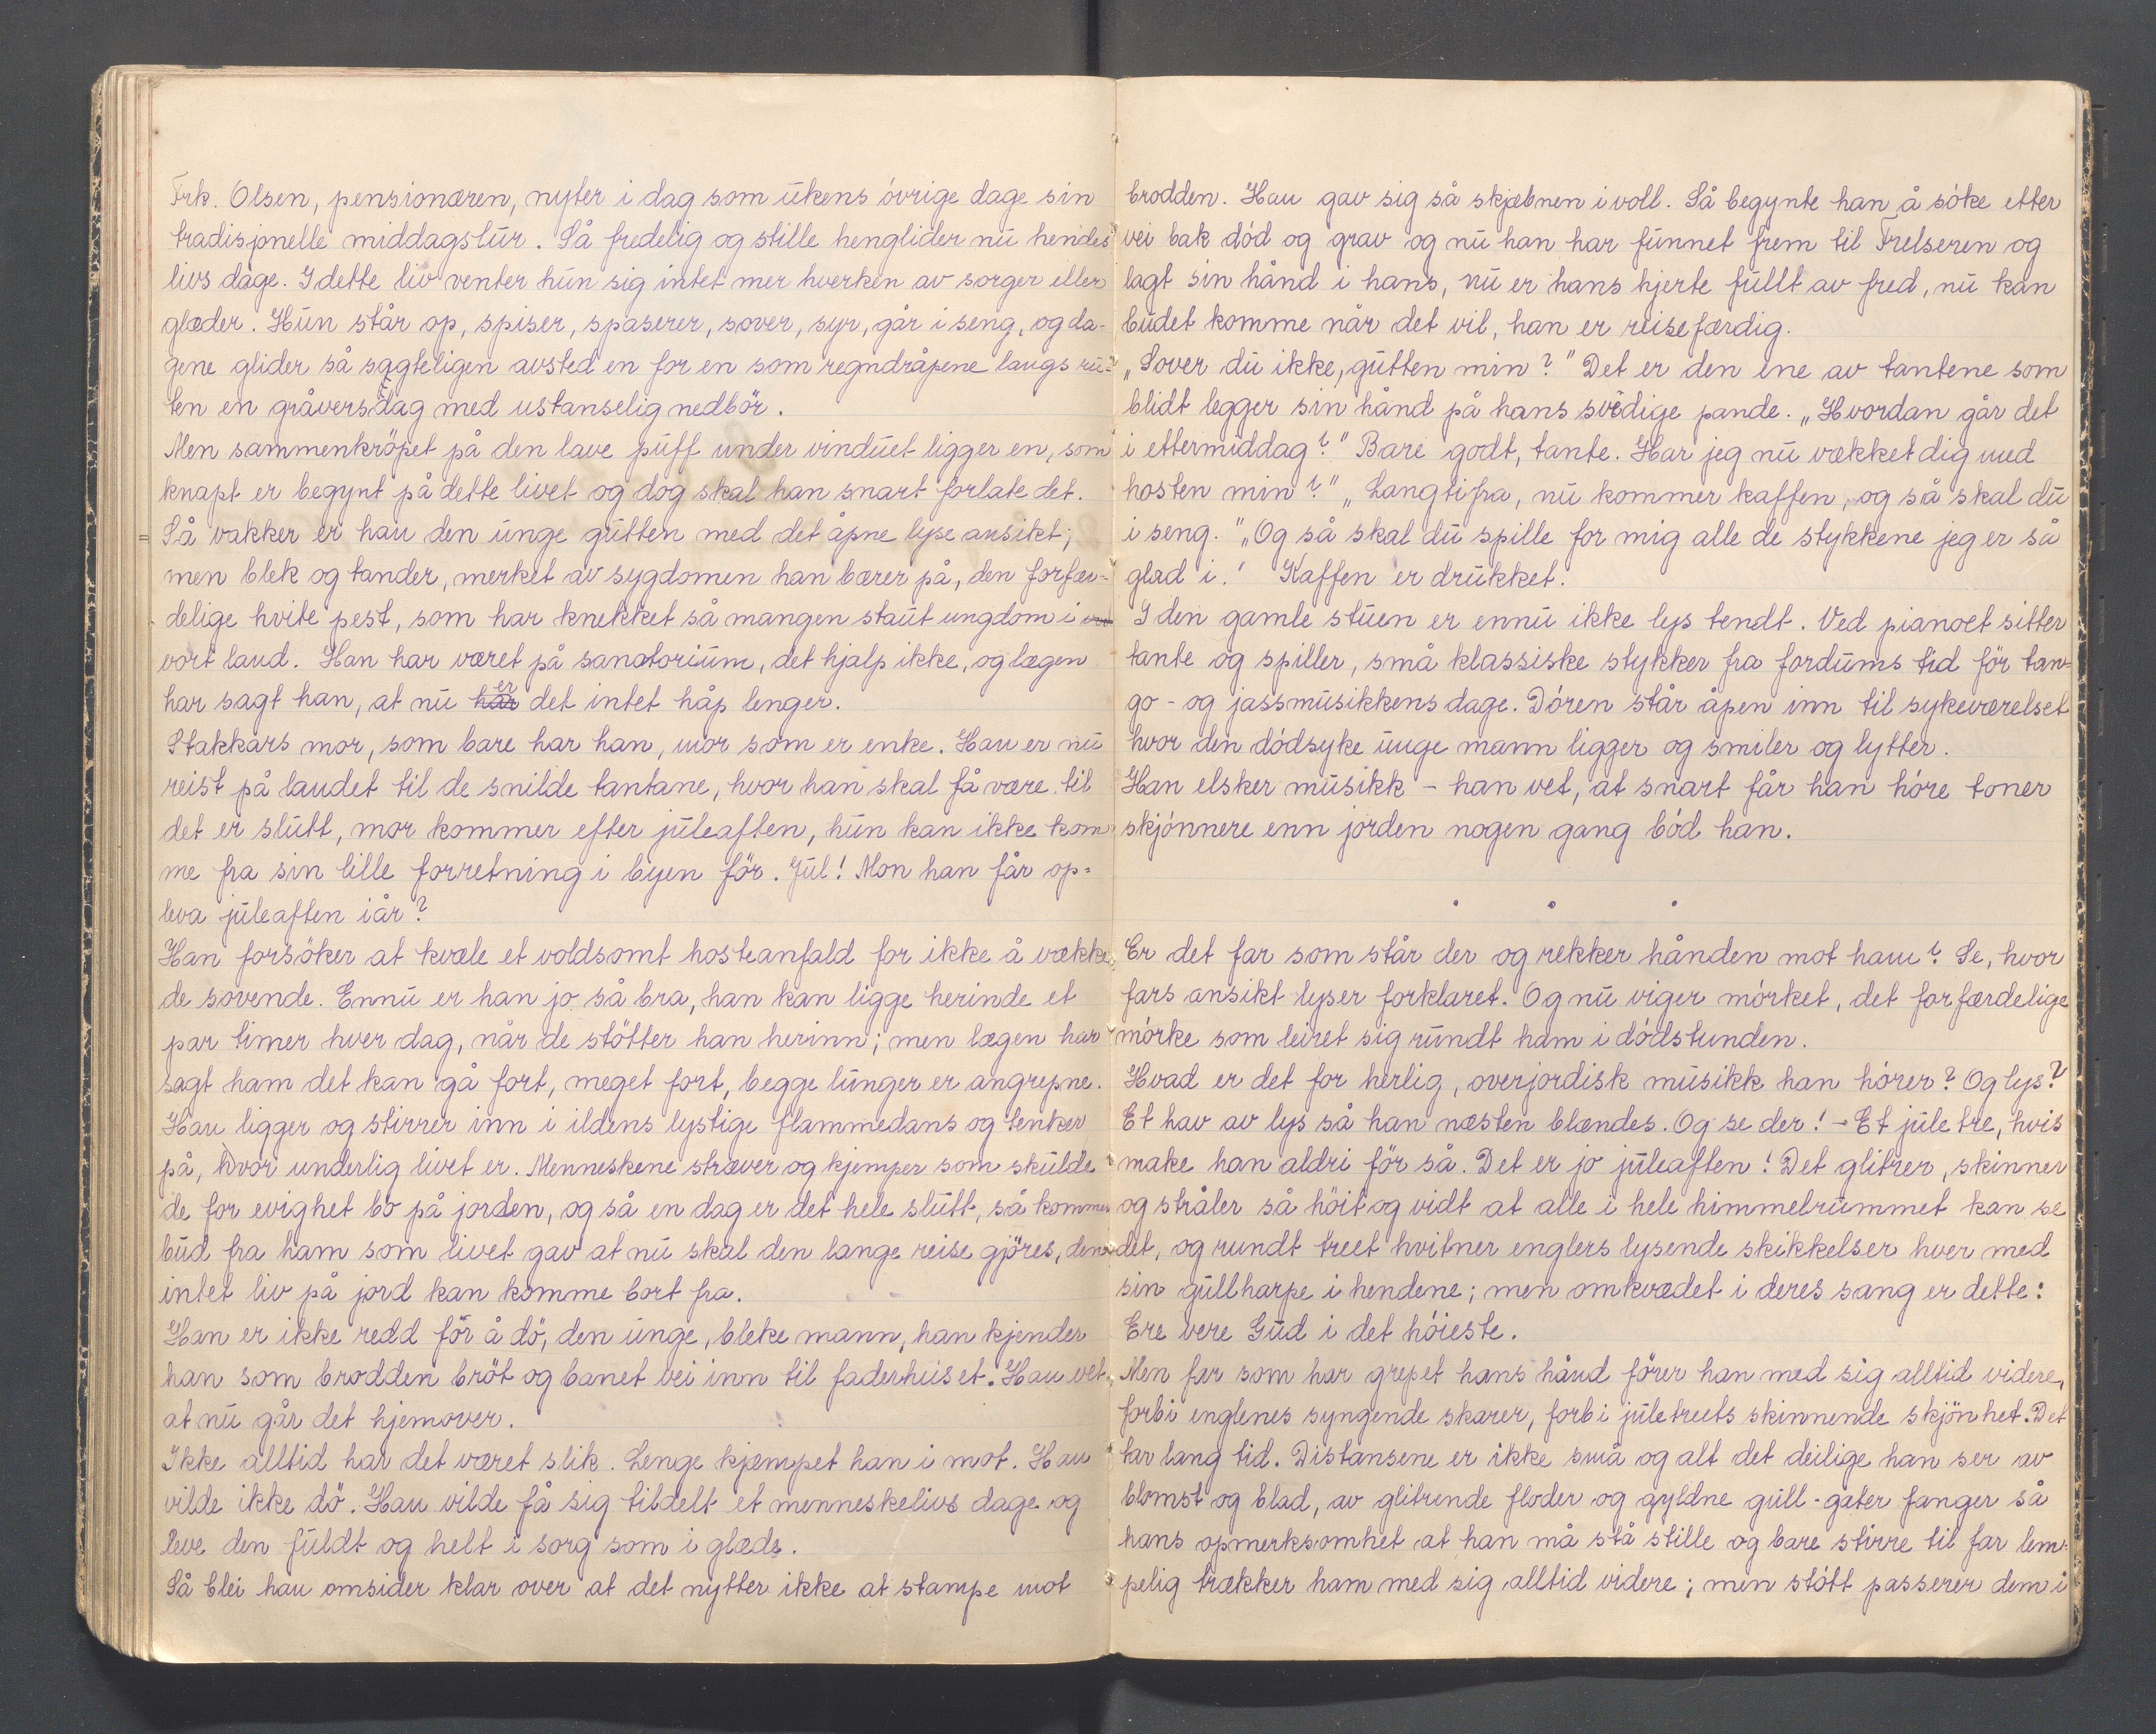 Frk. Olsen, pensionæren, nyter i dag som ukens övrige dage sin
tradisjonelle middagslur. Så fredelig og stille henglider nu hendes
livs dage. I dette liv venter hun sig intet mer hverken av sorger eller
glæder. Hun står op, spiser, spaserer, sover, syr, går i seng, og da-
gene glider så sagteligen avsted en for en som regndråpene langs ru-
ten en gråversdag med ustanselig nedbör.
Men sammenkröpet på den lave puff under vinduet ligger en, som
knapt er begynt på dette livet og dog skal han snart forlate det.
Så vakker er han den unge gutten med det åpne lyse ansikt;
men blek og tander, merket av sygdomen han bærer på, den forfær-
delige hvite pest, som har knekket så mangen staut ungdom i
vort land. Han har været på sanatorium, det hjalp ikke, og lægen
har sagt han, at nu har er det intet håp lenger.
Stakkars mor, som bare har han, mor som er enke. Han er nu
reist på landet til de snilde tantane, hvor han skal få være til
det er slutt, mor kommer efter juleaften, hun kan ikke kom
me fra sin lille forretning i byen för. Jul! Mon han får op-
leva juleaften iår?
Han forsöker at kvæle et voldsomt hosteanfald for ikke å vække
de sovende. Ennu er han jo så bra, han kan ligge herinde et
par timer hver dag, når de stötter han herinn; men lægen har
sagt ham det kan gå fort, meget fort, begge lunger er angrepne.
Han ligger og stirrer inn i ildens lystige flammedans og tenker
på, hvor underlig livet er. Menneskene stræver og kjemper som skulde
de for evighet bo på jorden, og så en dag er det hele slutt, så kommer
bud fra ham som livet gav at nu skal den lange reise gjöres, den
intet liv på jord kan komme bort fra.
Han er ikke redd för å dö, den unge, bleke mann, han kjender
han som brodden bröt og banet vei inn til faderhuset. Han vet
at nu går det hjemover.
Ikke alltid har det været slik. Lenge kjæmpet han i mot. Han
vilde ikke dö. Han vilde få sig tildelt et menneskelivs dage og
leve den fuldt og helt i sorg som i glæde.
Så blei han omsider klar over at det nytter ikke at stampe mot
brodden. Han gav sig så skjæbnen i voll. Så begynte han å söke etter
vei bak död og grav og nu han har funnet frem til Frelseren og
lagt sin hånd i hans, nu er hans hjerte fullt av fred, nu kan
budet komme når det vil, han er reisefærdig.
„Sover du ikke, gutten min?" Det er den ene av tantene som
blidt legger sin hånd på hans svedige pande. „Hvordan går det
i ettermiddag?" Bare godt, tante. Har jeg nu vækket dig med
hosten min?" „Langtifra, nu kommer kaffen, og så skal du
i seng." „Og så skal du spille for mig alle de stykkene jeg er så
glad i." Kaffen er drukket.
I den gamle stuen er ennu ikke lys tendt. Ved pianoet sitter
tante og spiller, små klassiske stykker fra fordums tid för tan-
go- og jassmusikkens dage. Dören står åpen inn til sykeværelset
hvor den dödsyke unge mann ligger og smiler og lytter.
Han elsker musikk – han vet, at snart får han höre toner
skjönnere enn jorden nogen gang böd han.
. . .
Er det far som står der og rekker hånden mot ham? Se, hvor
fars ansikt lyser forklaret. Og nu viger mörket, det forfærdelige
mörke som leiret sig rundt ham i dödstunden.
Hvad er det for herlig, overjordisk musikk han hörer? Og lys?
Et hav av lys så han næsten blændes. Og se der! – Et juletre, hvis
make han aldri för så. Det er jo juleaften! Det glitrer, skinner
og stråler så höit og vidt at alle i hele himmelrummet kan se
det, og rundt treet hvitner englers lysende skikkelser hver med
sin gullharpe i hendene; men omkvædet i deres sang er dette:
Ere vere Gud i det höieste.
Men far som har grepet hans hånd förer han med sig alltid videre,
forbi englenes syngende skarer, forbi juletreets skinnende skjönhet. Det
tar lang tid. Distansene er ikke små og alt det deilige han ser av
blomst og blad, av glitrende floder og gyldne gull-gater fanger så
hans opmerksomhet at han må stå stille og bare stirre til far lem-
pelig trækker ham med sig alltid videre; men stött passerer dem i